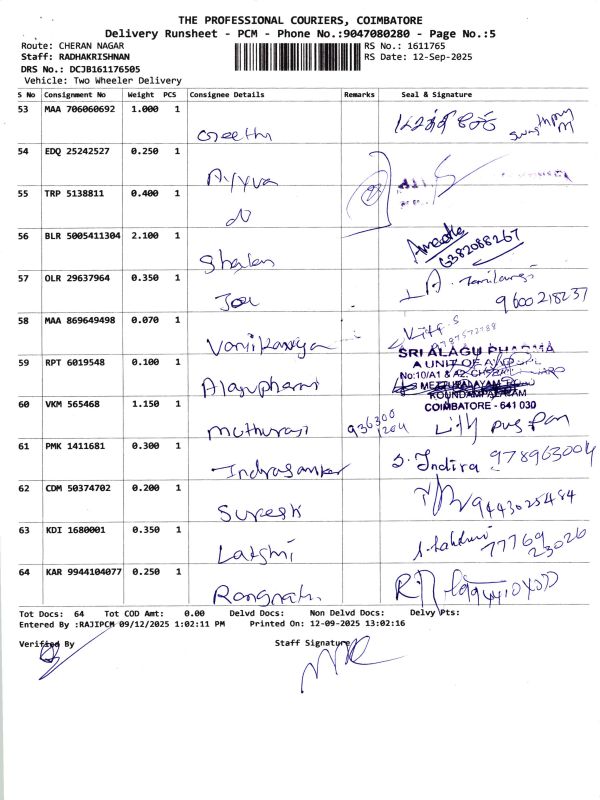 THE PROFESSIONAL COURIERS, COIMBATORE
Delivery Runsheet - PCM - Phone No.:9047080280 - Page No.:5
Route: CHERAN NAGAR
RS No.: 1611765
Staff: RADHAKRISHNAN
RS Date: 12-Sep-2025
DRS No.: DCJB161176505
Vehicle: Two Wheeler Delivery
S No Consignment No Weight PCS Consignee Details Remarks Seal & Signature
53 MAA 706060692 1.000 1
Geetha
54 EDQ 25242527 0.250 1
Ayyva
55 TRP 5138811 0.400 1
56 BLR 5005411304 2.100 1
6382088267
57 OLR 29637964 0.350 1
Joe
9600218237
58 MAA 869649498 0.070 1
SRI ALAGU PHARMA
59 RPT 6019548 0.100 1
A UNIT OF
No:10/A1 & A2
Alagupharma
METTUPALAYAM
KOUNDAMPALAYAM
60 VKM 565468 1.150 1
COIMBATORE - 641 030
Muthuraj
936300
Lilly
61 PMK 1411681 0.300 1
S. Indira 978963004
62 CDM 50374702 0.200 1
Suresh
9443025484
63 KDI 1680001 0.350 1
Lakshmi
77769
23026
64 KAR 9944104077 0.250 1
Tot Docs: 64 Tot COD Amt: 0.00 Delvd Docs: Non Delvd Docs: Delvy Pts:
Entered By :RAJIPCM 09/12/2025 1:02:11 PM Printed On: 12-09-2025 13:02:16
Verified By
Staff Signature